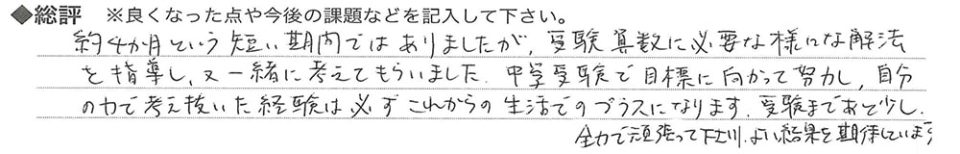 ◆総評 ※良くなった点や今後の課題などを記入して下さい。
約4か月という短い期間ではありましたが、受験算数に必要な様々な解法
を指導し、又一緒に考えてもらいました。中学受験で目標に向かって努力し、自分
の力で考え抜いた経験は必ずこれからの生活でのプラスになります。受験まであと少し。
全力で頑張って下さい。よい結果を期待しています